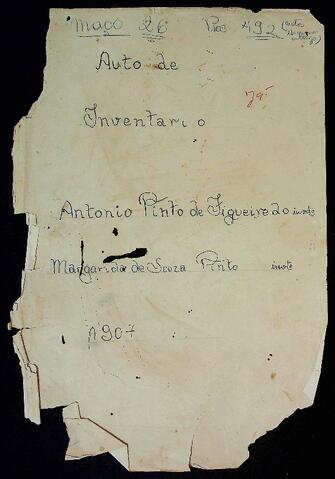 Maço 26 Proc 492 (auto
Auto de
já
Inventario
Antonio Pinto de Figueiredo invte
Margarida de Souza Pinto invte
A907